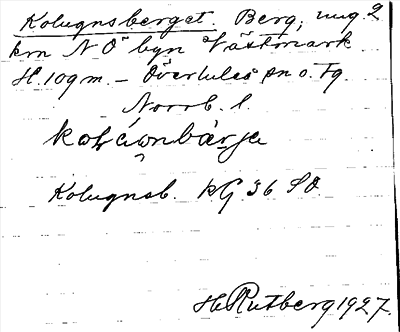 Kolugnsberget. Berg, ung. 2
km N Ö byn Västmark.
H. 109 m. – Överlules sn o. Tg.
Norrb. l.
Kolugnsb. kG. 36 SO.
H. Rutberg 1927.